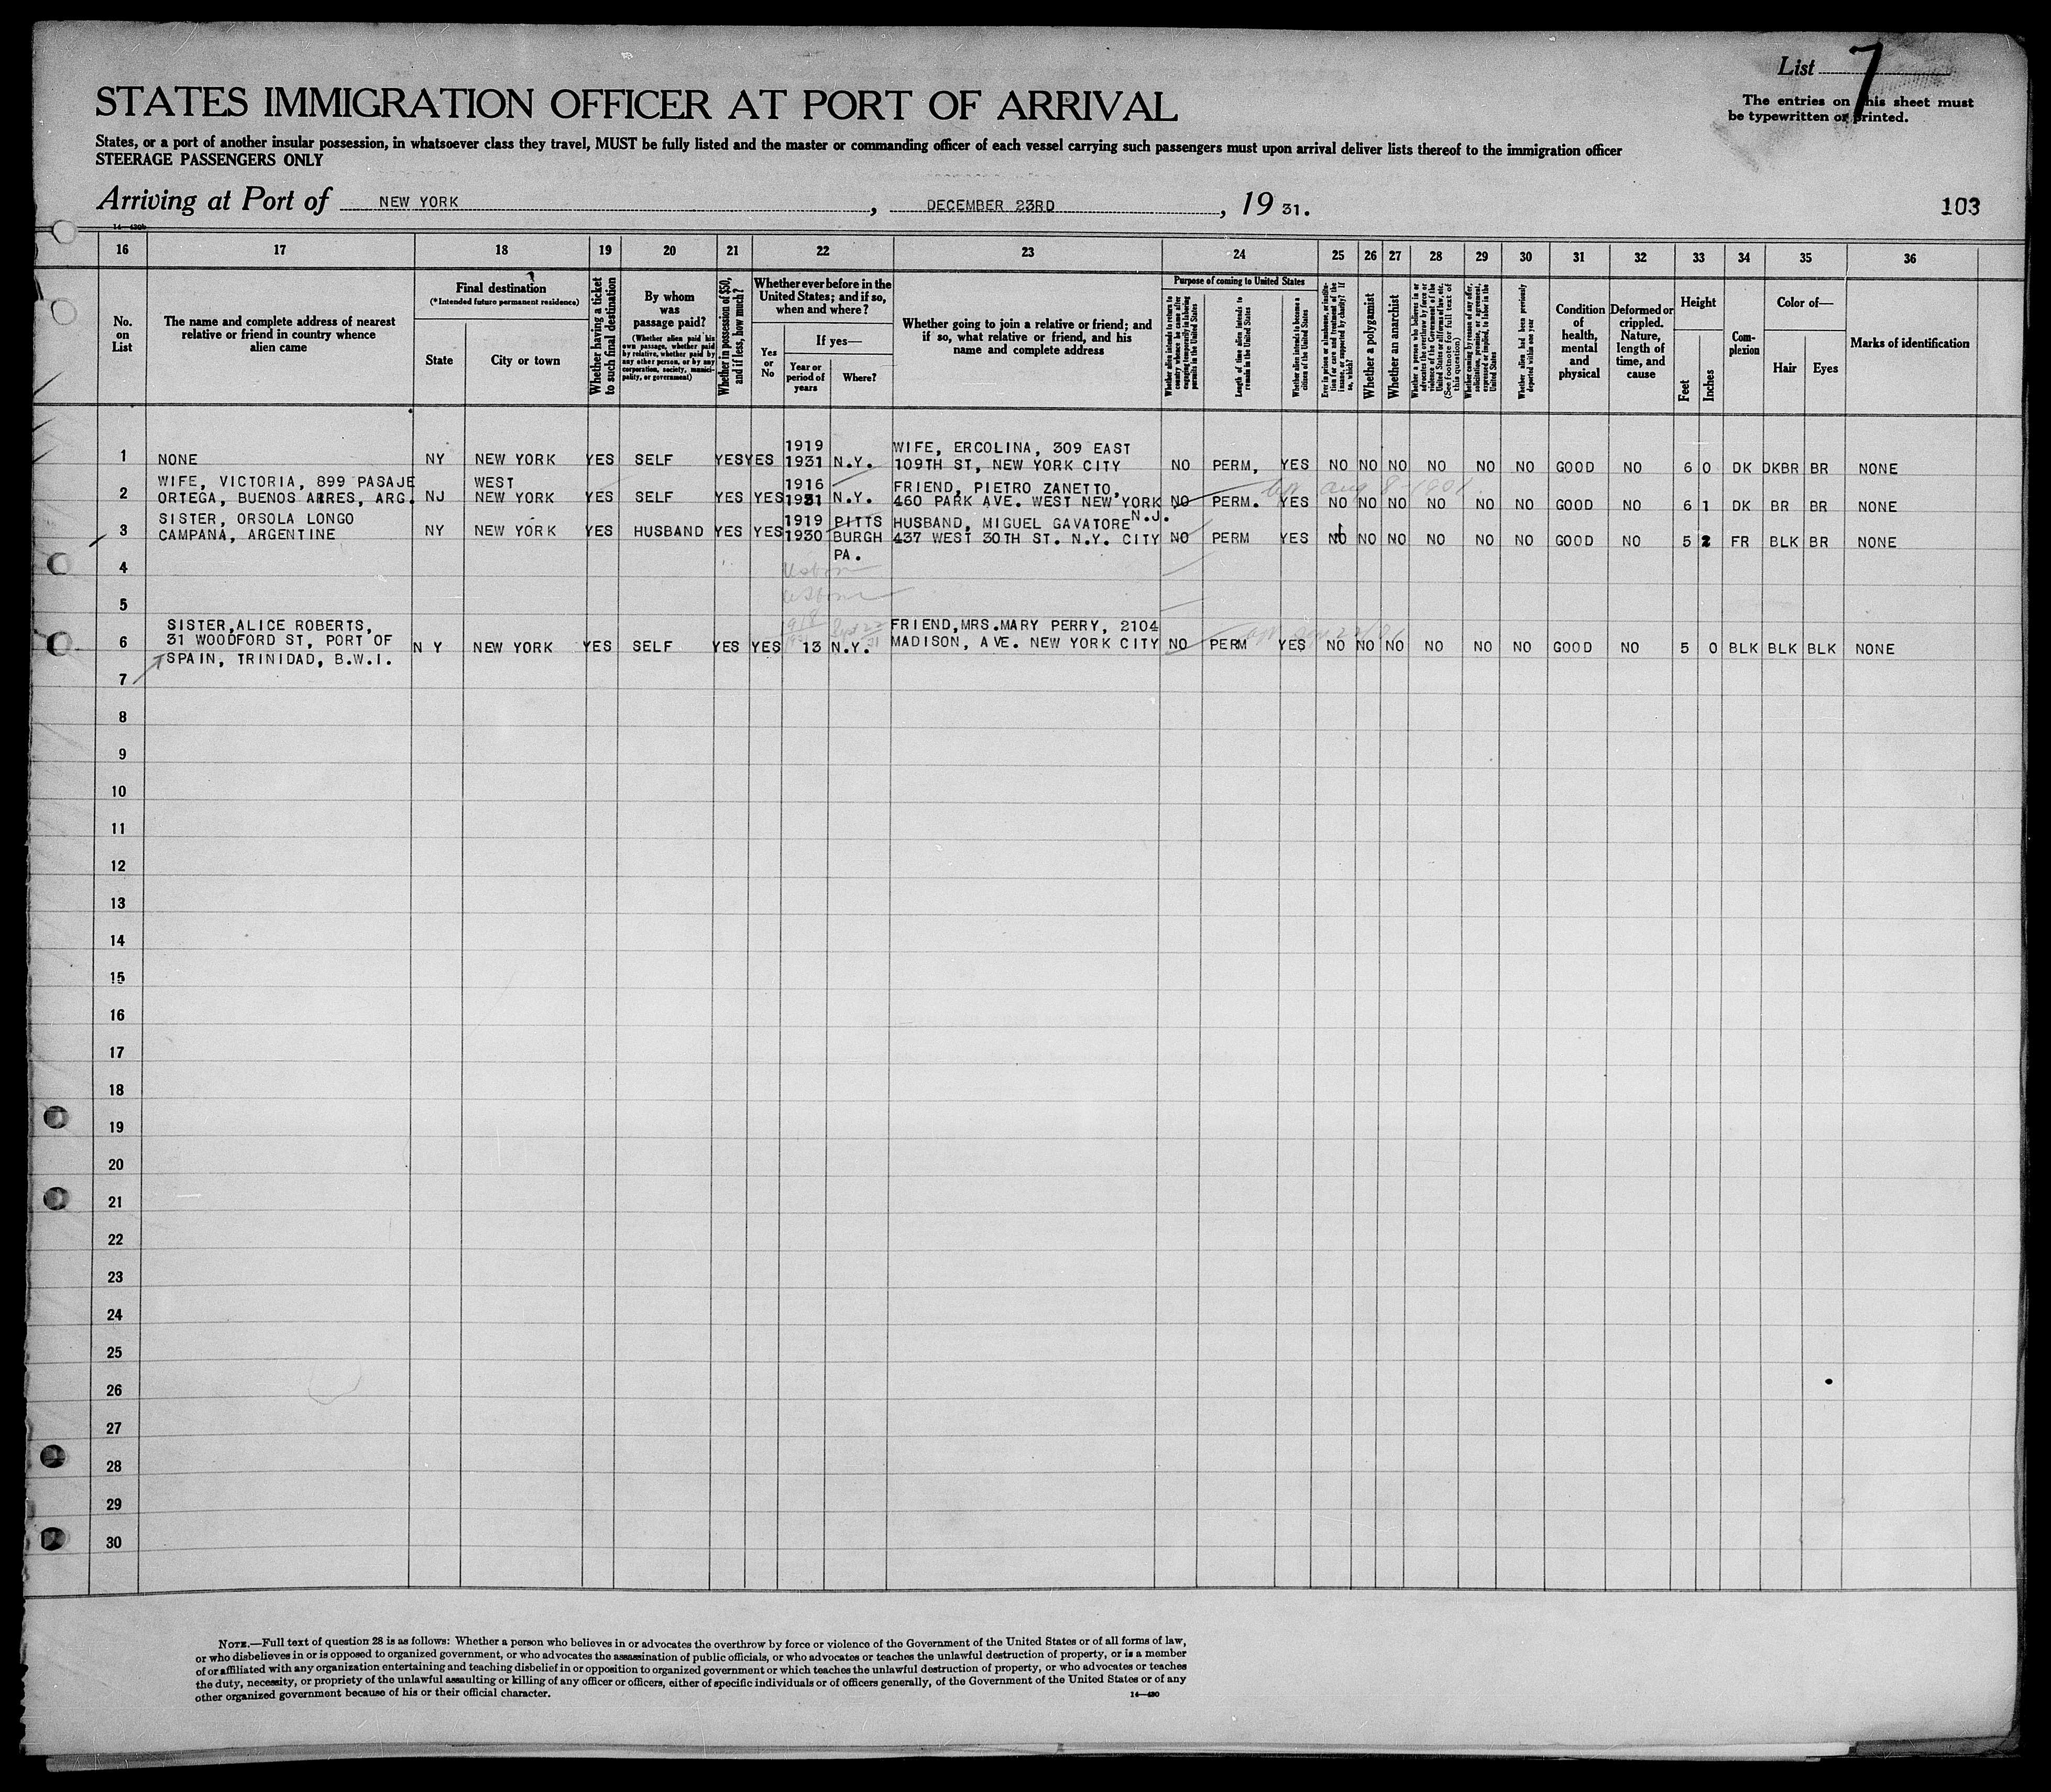 List 7
The entries on this sheet must
be typewritten or printed.
STATES IMMIGRATION OFFICER AT PORT OF ARRIVAL
States, or a port of another insular possession, in whatsoever class they travel, MUST be fully listed and the master or commanding officer of each vessel carrying such passengers must upon arrival deliver lists thereof to the immigration officer
STEERAGE PASSENGERS ONLY
Arriving at Port of NEW YORK, DECEMBER 23RD, 19 31.
103
16 17 18 19 20 21 22 23 24 25 26 27 28 29 30 31 32 33 34 35 36
No. on List
The name and complete address of nearest relative or friend in country whence alien came
Final destination
(*Intended future permanent residence)
State
City or town
Whether having a ticket to such final destination
By whom was passage paid?
(Whether alien paid his own passage, whether paid by relative, whether paid by any other person, or by any corporation, society, municipality, or government)
Whether in possession of $50, and if less, how much?
Whether ever before in the United States; and if so, when and where?
Yes or No
If yes—
Year or period of years
Where?
Whether going to join a relative or friend; and if so, what relative or friend, and his name and complete address
Purpose of coming to United States
Whether alien intends to return to country whence he came after engaging temporarily in laboring pursuits in the United States
Length of time alien intends to remain in the United States
Whether alien intends to become a citizen of the United States
Ever in prison or almshouse, or institution for care and treatment of the insane, or supported by charity? If so, which?
Whether a polygamist
Whether an anarchist
Whether a person who believes in or advocates the overthrow by force or violence of the Government of the United States or all forms of law, etc. (See footnote for full text of this question)
Whether coming by reason of any offer, solicitation, promise, or agreement, expressed or implied, to labor in the United States
Whether alien had been previously deported within one year
Condition of health, mental and physical
Deformed or crippled. Nature, length of time, and cause
Height
Feet
Inches
Complexion
Color of—
Hair
Eyes
Marks of identification
1 NONE NY NEW YORK YES SELF YES YES 1919 1931 N.Y. WIFE, ERCOLINA, 309 EAST 109TH ST, NEW YORK CITY NO PERM, YES NO NO NO NO NO NO GOOD NO 6 0 DK DKBR BR NONE
2 WIFE, VICTORIA, 899 PASAJE ORTEGA, BUENOS AIRES, ARG. NJ WEST NEW YORK YES SELF YES YES 1916 1931 N.Y. FRIEND, PIETRO ZANETTO, 460 PARK AVE. WEST NEW YORK N.J. NO PERM. YES NO NO NO NO NO NO GOOD NO 6 1 DK BR BR NONE
Aug 8-1901
3 SISTER, ORSOLA LONGO CAMPANA, ARGENTINE NY NEW YORK YES HUSBAND YES YES 1919 1930 PITTS BURGH PA. HUSBAND, MIGUEL GAVATORE 437 WEST 30TH ST. N.Y. CITY NO PERM YES NO NO NO NO NO NO GOOD NO 5 2 FR BLK BR NONE
4
5
6 SISTER,ALICE ROBERTS, 31 WOODFORD ST, PORT OF SPAIN, TRINIDAD, B.W.I. N Y NEW YORK YES SELF YES YES 13 N.Y. FRIEND,MRS.MARY PERRY, 2104 MADISON, AVE. NEW YORK CITY NO PERM YES NO NO NO NO NO NO GOOD NO 5 0 BLK BLK BLK NONE
7
8
9
10
11
12
13
14
15
16
17
18
19
20
21
22
23
24
25
26
27
28
29
30
NOTE.—Full text of question 28 is as follows: Whether a person who believes in or advocates the overthrow by force or violence of the Government of the United States or of all forms of law,
or who disbelieves in or is opposed to organized government, or who advocates the assassination of public officials, or who advocates or teaches the unlawful destruction of property, or is a member
of or affiliated with any organization entertaining and teaching disbelief in or opposition to organized government or which teaches the unlawful destruction of property, or who advocates or teaches
the duty, necessity, or propriety of the unlawful assaulting or killing of any officer or officers, either of specific individuals or of officers generally, of the Government of the United States or of any
other organized government because of his or their official character.
14—430